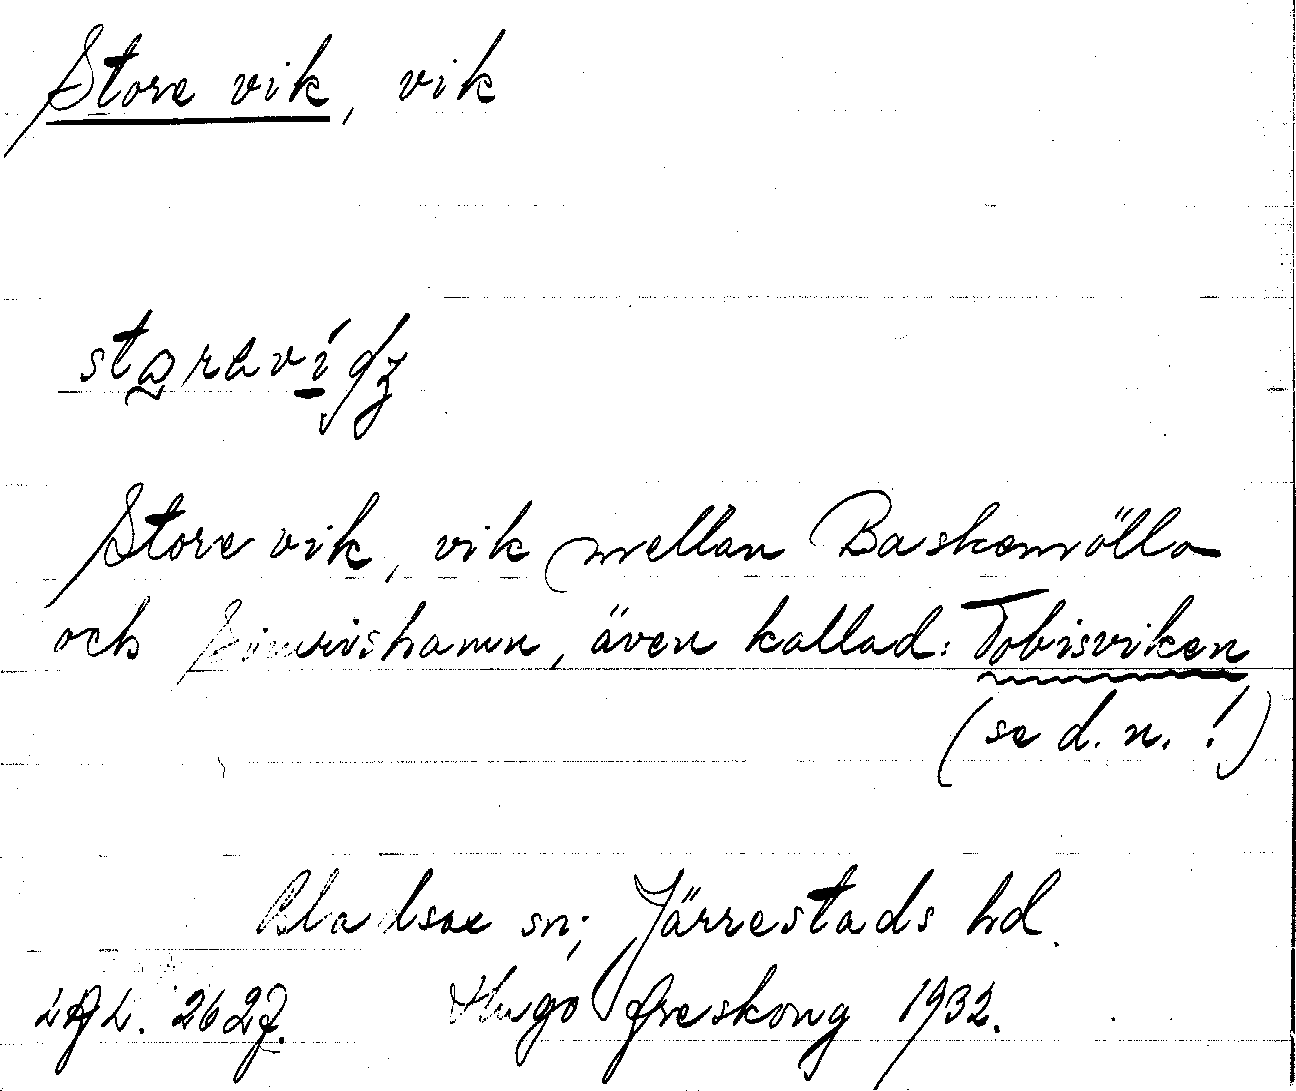 Store vik, vik
Store vik, vik mellan Baskemölla
och Simrishamn, även kallad: Tobisviken
(se d. n.!)
Bladsae sn; Järrestads hd.
LAL. 2627. Hugo Areskoug 1932.